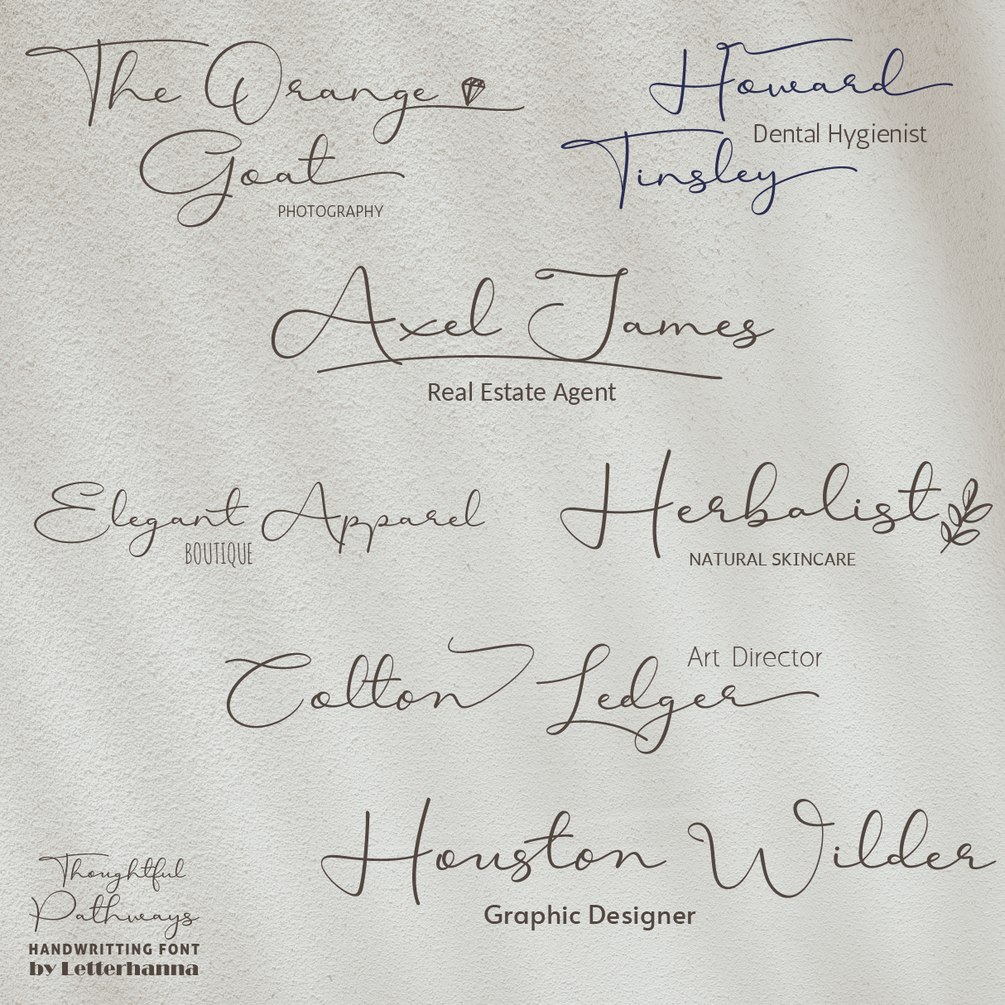 The Orange
Goat
PHOTOGRAPHY
Howard
Dental Hygienist
Tinsley
Axel James
Real Estate Agent
Elegant Apparel
BOUTIQUE
Herbalist
NATURAL SKINCARE
Art Director
Colton Ledger
Houston Wilder
Graphic Designer
Thoughtful
Pathways
HANDWRITTING FONT
by Letterhanna